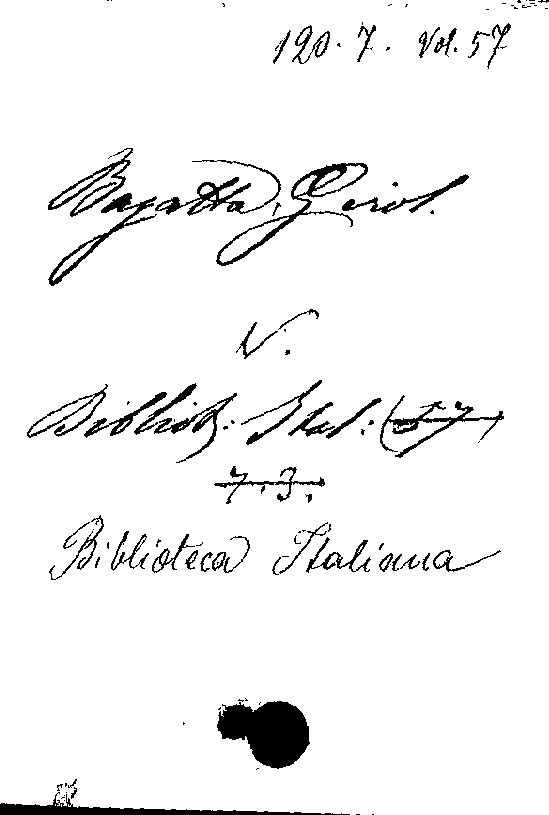 120. 7. Vol. 57
Bagatta, Girol.
V.
Biblioth: Ital: (57)
7. 3.
Biblioteca Italiana